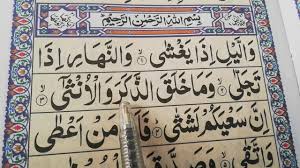 بِسْمِ اللّٰهِ الرَّحْمٰنِ الرَّحِيْمِ
وَالَّيْلِ اِذَا يَغْشٰى ۙ﴿۱﴾ وَالنَّهَارِ اِذَا
تَجَلّٰى ۙ﴿۲﴾ وَمَا خَلَقَ الذَّكَرَ وَالْاُنْثٰۤى ۙ﴿۳﴾
اِنَّ سَعْيَكُمْ لَشَتّٰى ؕ﴿۴﴾ فَاَمَّا مَنْ اَعْطٰى
وَاتَّقٰى